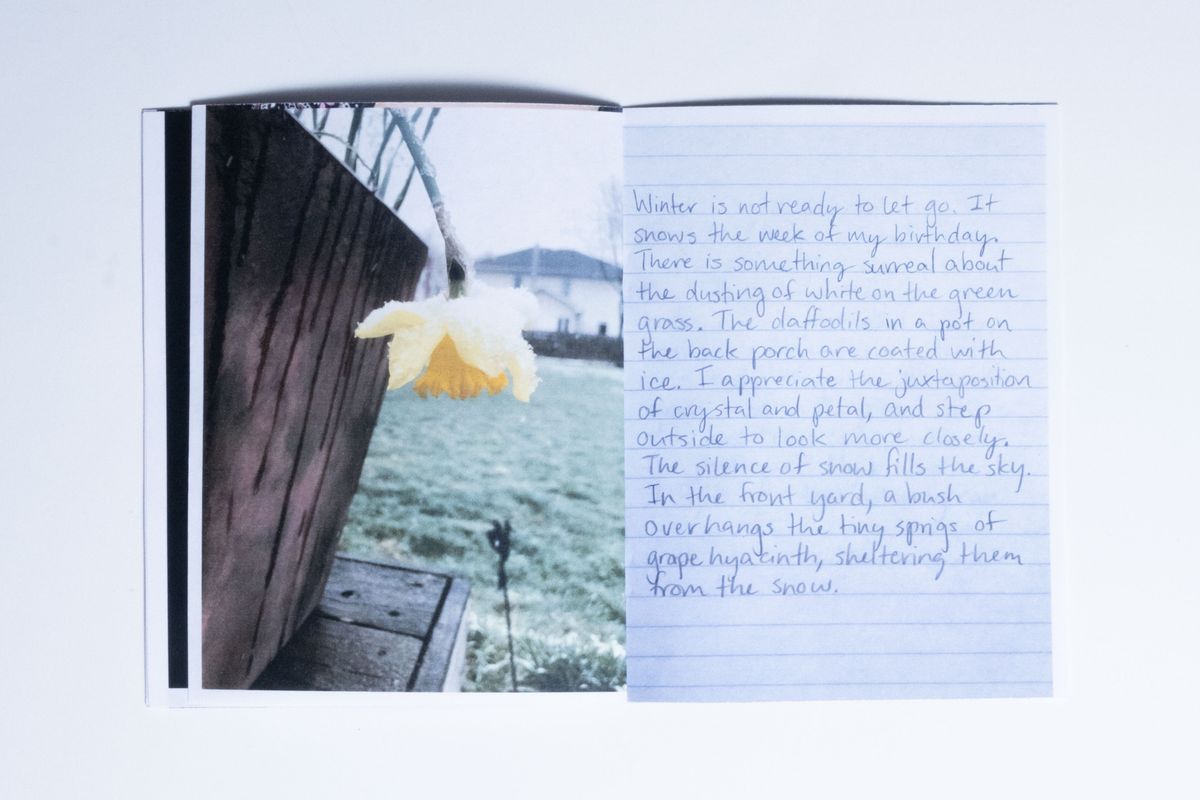 Winter is not ready to let go. It
snows the week of my birthday.
There is something surreal about
the dusting of white on the green
grass. The daffodils in a pot on
the back porch are coated with
ice. I appreciate the juxtaposition
of crystal and petal, and step
outside to look more closely.
The silence of snow fills the sky.
In the front yard, a bush
overhangs the tiny sprigs of
grape hyacinth, sheltering them
from the snow.